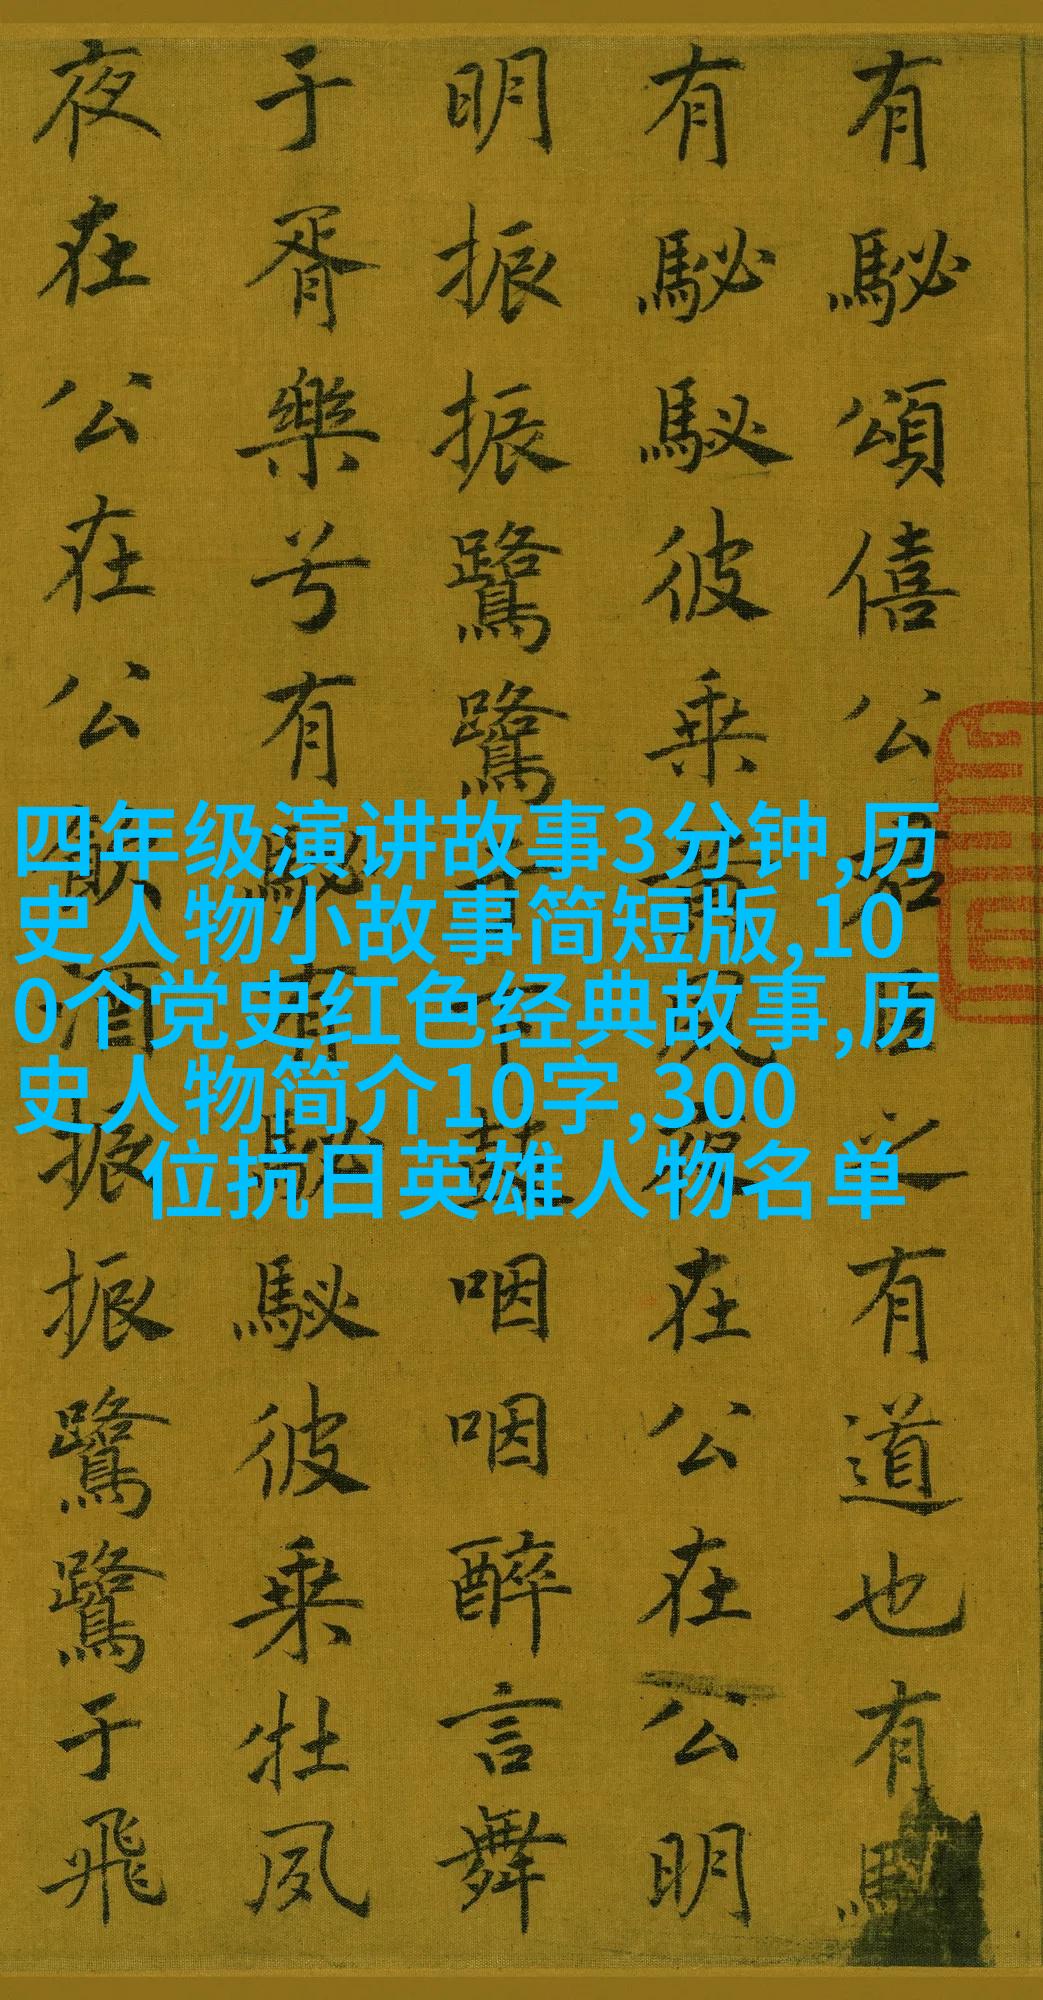 有駜頌僖公君臣之有道也有
有駜駜彼乘夙夜在公在公明
明振振鷺鷺于下鼓咽咽醉言舞
于胥樂兮有駜有駜駜彼乘牡夙
夜在公在公飲酒振振鷺鷺于飛
四年级演讲故事3分钟,历
史人物小故事简短版,10
0个党史红色经典故事,历
史人物简介10字,300
位抗日英雄人物名单